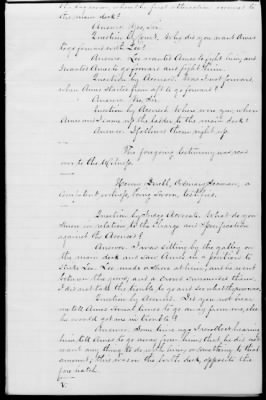 the main deck?
Answer. Yes, Sir.
Question by Court. Why did you want Ames to go forward with Lee?
Answer. Lee wanted Ames to fight him, and I wanted Ames to go forward and fight him.
Question by Accused. Was I not forward, when Ames started from aft to go forward?
Answer. No, Sir.
Question by Accused. Where were you, when Ames and I came up the ladder to the main deck?
Answer. I followed them right up.
The foregoing testimony was read over to the witness.
Henry Scull, Ordinary Seaman, a competent witness, being sworn, testifies.
Question by Judge Advocate. What do you know in relation to the Charge and Specification against the Accused?
Answer. I was sitting by the galley on the main deck and saw Ames in a position to strike Lee. Lee made a at him, and he went between the guns, and a crowd surrounded them. I did not take the trouble to go and see what the row was.
Question by Accused. Did you not hear me tell Ames several times to go away from me, else he would get me in trouble?
Answer. Some time ago I recollect hearing him tell Ames to go away from him; that he did not want any thing to do with him, or something to that amount; this was on the berth deck, opposite the fore hatch.